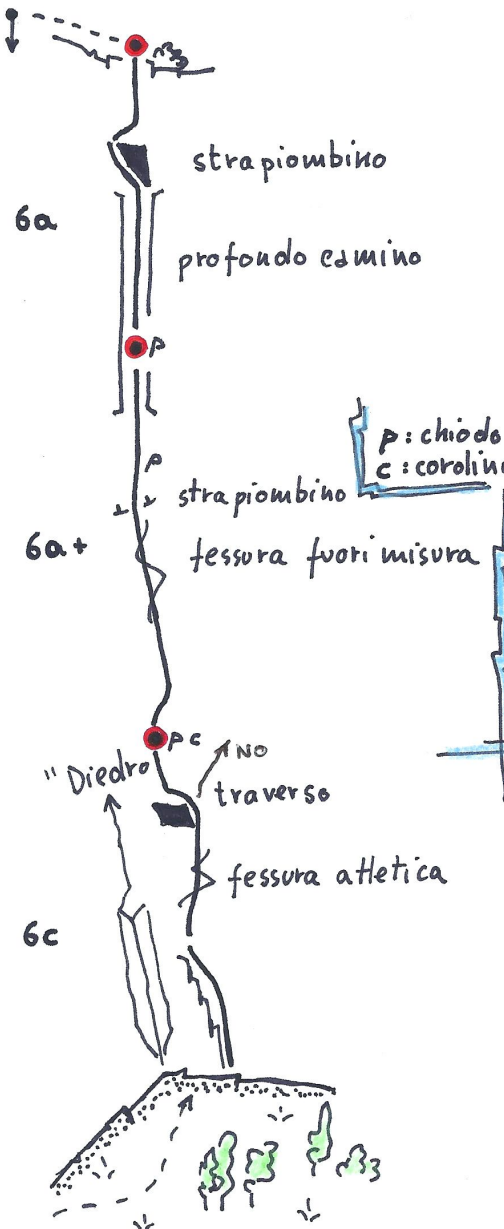 strapiombino
6a
profondo camino
p
p: chiodo
p
c: cordino
strapiombino
6a+
fessura fuori misura
pc
NO
"Diedro
traverso
fessura atletica
6c